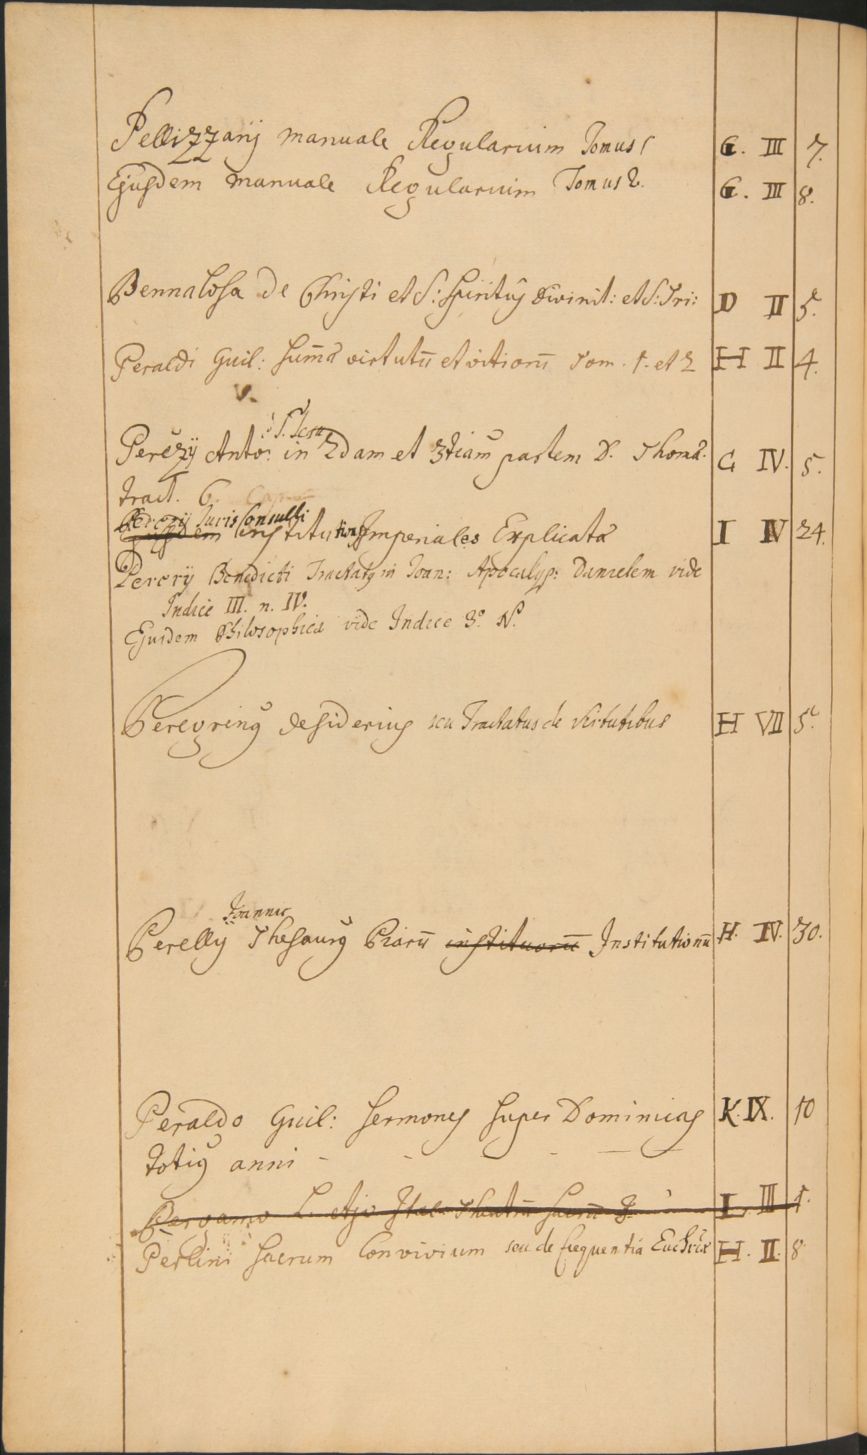 Pellizzarij manuale Regularium Tomus 1 G. III 7.
Ejusdem manuale Regularium Tomus 2. G. III 8.
Bennalosa de Christi et S: Spiritus divinit: et S: Tri: D II 5.
Peraldi Guil: Sum̄a virtutū et vitiorū Tom. 1. et 2 H II 4.
V.
S. Iesu
Perezij Anto: in 2dam et 3tiam partem D. Thomæ. G IV. 5.
tract. 6.
Juris Consulti
Ejusdem institutiones Imperiales Explicatæ I IV 24.
Pererij Benedicti Tractatus in Joan: Apocalyp: Danielem vide
Indice III. n. IV.
Ejusdem Philosophica vide Indice 3º N.
Peregrinus desiderius seu Tractatus de Virtutibus H VII 5.
Joannis
Perelly Thesaurus Piarū instituorū Institutionū H. IV. 30.
Peraldo Guil: Sermones super Dominicas K. IX. 10
totius anni - - - - -
Bergamo Theatrū Sacrū L III 1.
Perlini Sacrum Convivium seu de frequentia H. II. 8